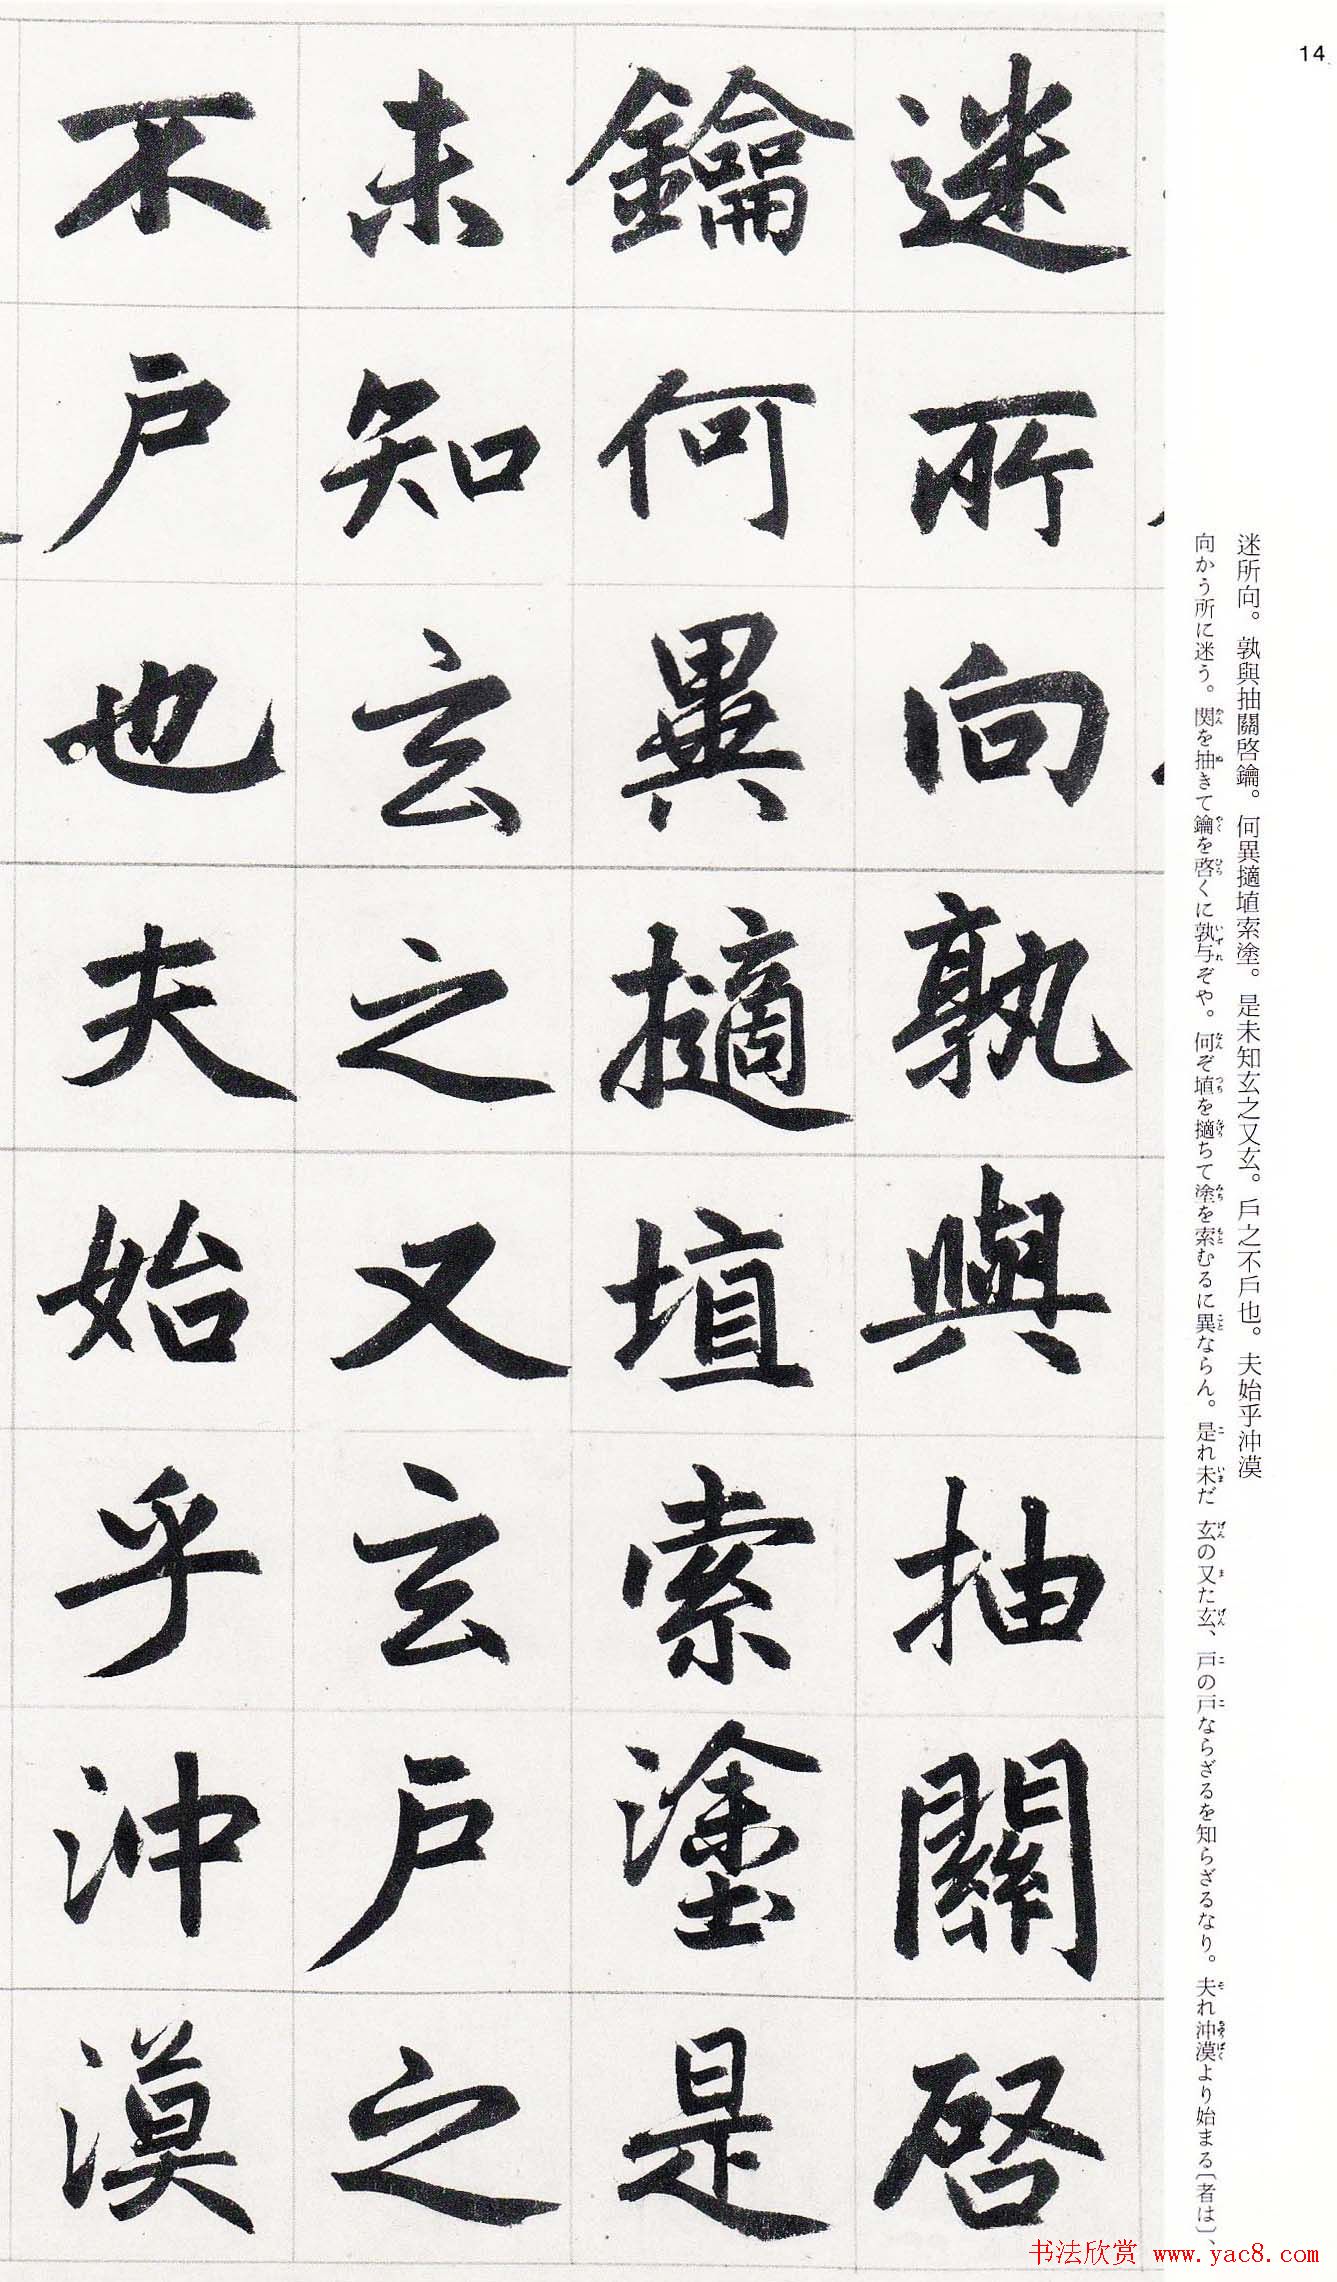 14
迷所向。孰與抽關啓鑰。何異擿埴索塗。是未知玄之又玄。戶之不戶也。夫始乎沖漠
向かう所に迷う。関を抽きて鑰を啓くに孰与ぞや。何ぞ埴を擿ちて塗を索むるに異ならん。是れ未だ玄の又た玄、戸の戸ならざるを知らざるなり。夫れ沖漠より始まる〔者は〕、
迷所向孰與抽關啓
鑰何異擿埴索塗是
未知玄之又玄戶之
不戶也夫始乎沖漠
书法欣赏 www.yac8.com